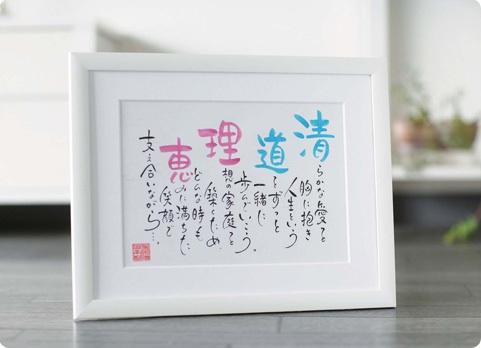 清らかな愛を
胸に抱き
人生という
道をずっと
一緒に
歩んでいこう。
理想の家庭を
築くため
どんな時も
恵みに満ちた
笑顔で
支え合いながら…